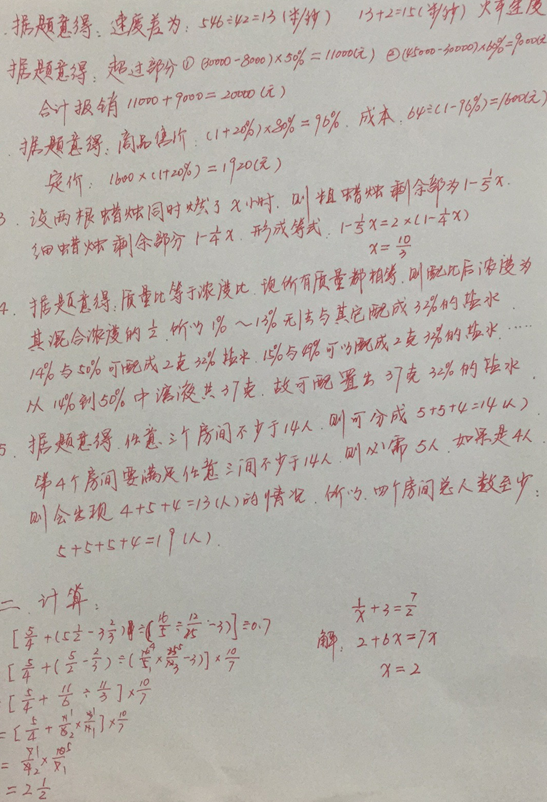 据题意得:速度差为:546÷42=13(米/秒) 13+2=15(米/秒) 火车速度
据题意得:超过部分①(30000-8000)×50%=11000(元) ②(45000-30000)×60%=9000(元
合计报销11000+9000=20000(元)
据题意得:商品售价:(1+20%)×80%=96%.成本:64÷(1-96%)=1600(元)
定价:1600×(1+20%)=1920(元)
3.设两根蜡烛同时燃了x小时.则粗蜡烛剩余部为1-1/5x.
细蜡烛剩余部分1-1/4x.形成等式:1-1/5x=2×(1-1/4x)
x=10/3
4.据题意得.质量比等于浓度比.设所有质量都相等.则配比后浓度为
其混合浓度的1/2.所以1%~13%无法与其它配成32%的盐水.
14%与50%可配成2克32%盐水.15%与49%可以配成2克32%的盐水……
从14%到50%中溶液共37克.故可配置出37克32%的盐水.
5.据题意得.任意三个房间不少于14人.则可分成5+5+4=14(人)
第4个房间要满足任意三间不少于14人.则必需5人.如果是4人.
则会出现4+5+4=13(人)的情况.所以.四个房间总人数至少:
5+5+5+4=19(人).
二.计算:
[5/4+(5 1/2-3 2/3)÷(16/5÷12/25-3)]÷0.7
[5/4+(5/2-2/3)÷(16/5×25/12-3)]×10/7
[5/4+11/6÷11/3]×10/7
=[5/4+11/6×3/11]×10/7
=7/4×10/7
=2 1/2
1/x+3=7/2
解:2+6x=7x
x=2